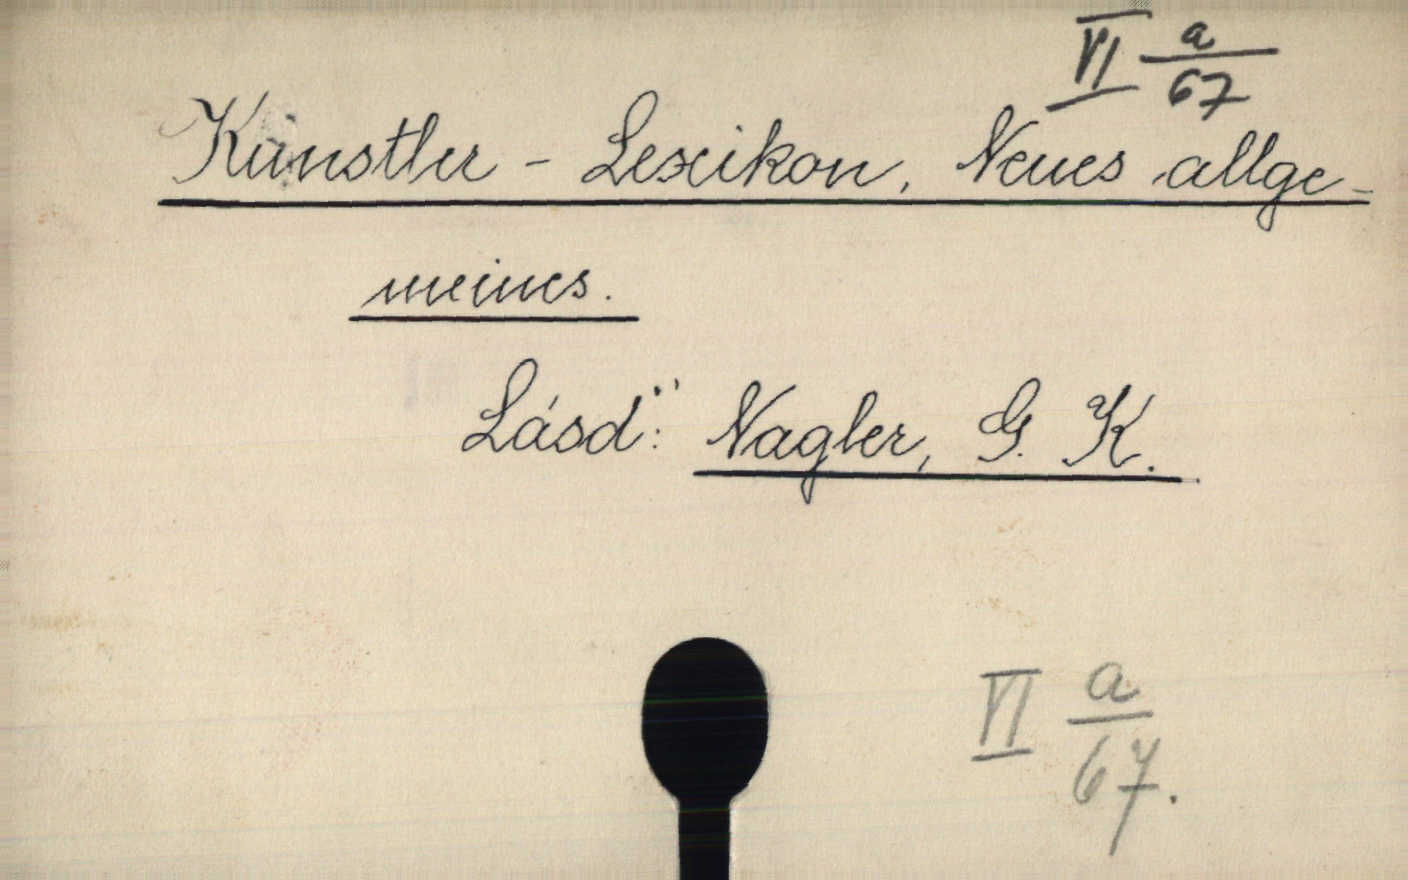 VI a/67
Künstler - Lexikon, Neues allge-
meines.
Lásd: Nagler, G. K.
VI a/67.